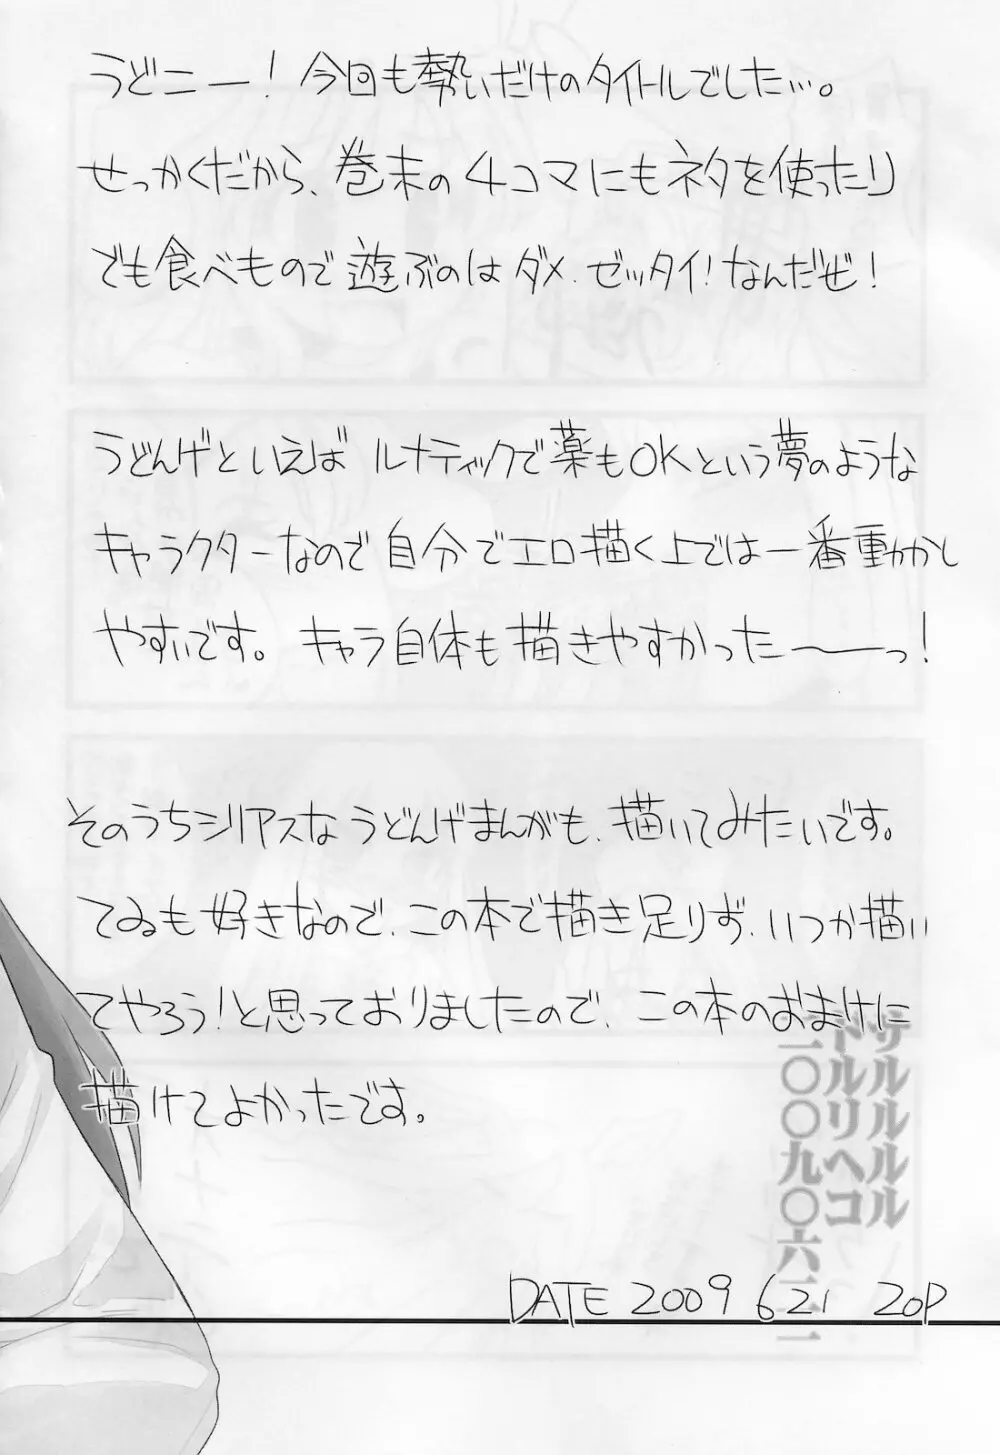 うどニー！今回も勢いだけのタイトルでした…。
せっかくだから、巻末の4コマにもネタを使ったり
でも食べもので遊ぶのはダメ.ゼッタイ！なんだぜ！
うどんげといえばルナティックで薬もOKという夢のような
キャラクターなので自分でエロ描く上では一番動かし
やすいです。キャラ自体も描きやすかった〜ーっ！
そのうちシリアスなうどんげまんがも、描いてみたいです。
てゐも好きなので、この本で描き足りず、いつか描い
てやろう！と思っておりましたので、この本のおまけに
描けてよかったです。
DATE 2009 6 21 20P